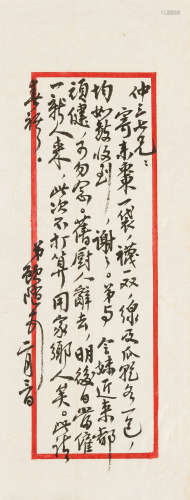 仲三七兄：
寄来枣一袋，袜一双，线及瓜乾各一包，
均如数收到，谢谢。弟与令妹近来都
顽健，可勿念。旧厨人辞去，明后日当催
一新人来，此次不打算用家乡人矣。此请
春祺。
弟 二月三日